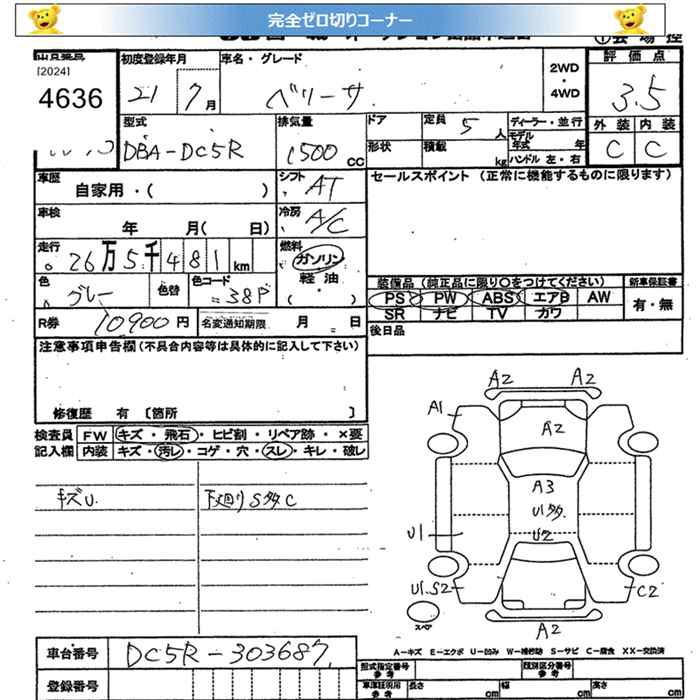 完全ゼロ切りコーナー
[2024]
4636
初度登録年月
21 7月
車名・グレード
ベリーサ
2WD
・
4WD
評価点
3.5
外装 内装
C C
型式
DBA-DC5R
排気量
1500 CC
ドア
形状
定員 5 人
積載 kg
ディーラー・並行
モデル年式 年
ハンドル 左・右
車歴
自家用・( )
シフト
AT
セールスポイント (正常に機能するものに限ります)
車検
年 月( 日)
冷房
A/C
走行
26万5千481km
燃料
ガソリン
軽・油
( )
色
グレー
色替
色コード
38P
装備品 (純正品に限り○をつけてください)
PS PW ABS エアB AW
SR ナビ TV カワ
新車保証書
有・無
R券
10900円
名変通知期限 月 日
後日品
注意事項申告欄(不具合内容等は具体的に記入して下さい)
修復歴 有 〔箇所 〕
検査員
記入欄
FW キズ・飛石・ヒビ割・リペア跡・×要
内装 キズ・汚レ・コゲ・穴・スレ・キレ・破レ
キズU
下廻りS多C
A2 A2
A1
A2
A3
U1多
U2
U1
U1.S2
C2
スペア
A2
A-キズ E-エクボ U-凹み W-補修跡 S-サビ C-腐食 XX-交換済
車台番号
DC5R-303687
登録番号
型式指定番号
参考
類別区分番号
参考
車庫証明用
参考
長さ cm
幅 cm
高さ cm